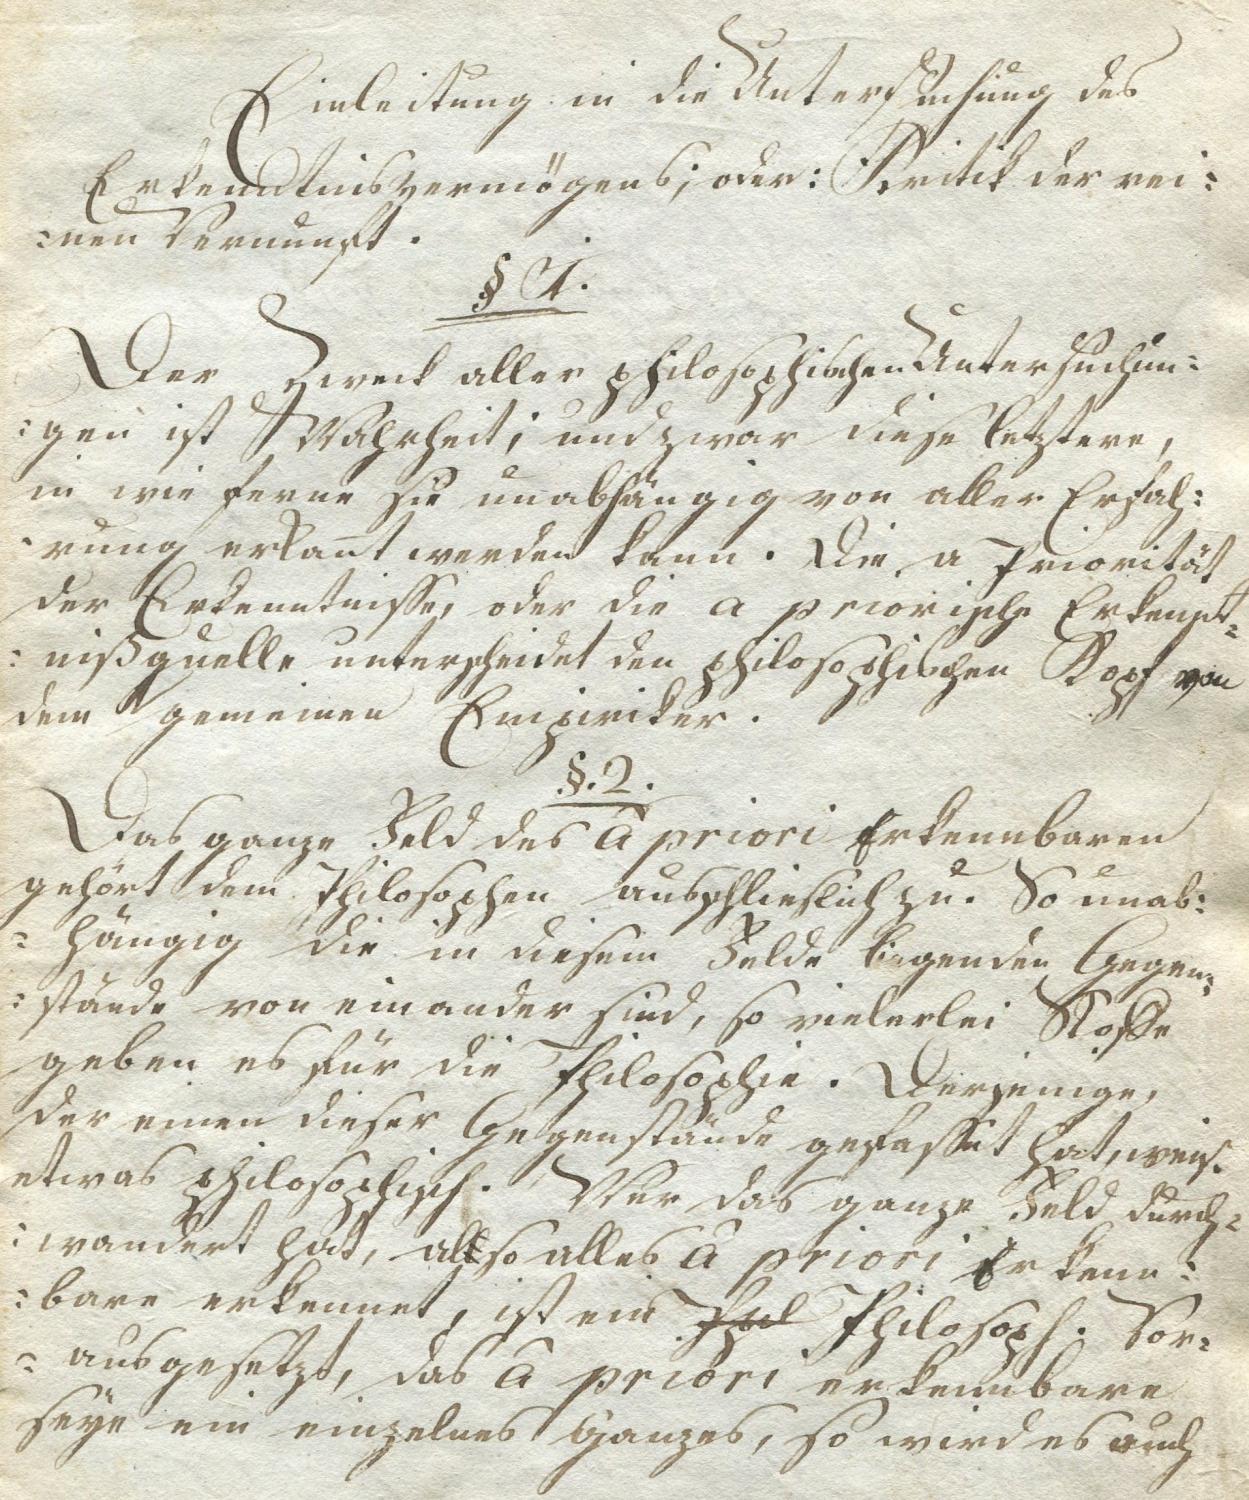 Einleitung in die Untersuchung des
Erkenntnisvermögens; oder: Kritik der rei=
=nen Vernunft.
§ 1.
Der Zweck aller philosophischen Untersuchun=
=gen ist Wahrheit; und zwar diese letztere,
in wie ferne sie unabhängig von aller Erfah=
=rung erkañt werden kann. Die a Priorität
der Erkenntnisse, oder die a priorische Erkennt=
=nißquelle unterscheidet den philosophischen Kopf von
dem gemeinen Empiriker.
§. 2.
Das ganze Feld des à priori Erkennbaren
gehört dem Philosophen ausschlieslich zu. So unab=
=hängig die in diesem Felde liegenden Gegen=
=stände von einander sind, so vielerlei Stoffe
geben es für die Philosophie. Derjenige,
der einen dieser Gegenstände gefasset hat, weis
etwas philosophisch. Wer das ganze Feld durch=
=wandert hat, also alles à priori Erkenn=
=bare erkennet, ist ein Phil Philosoph. Vor=
=ausgesetzt, das à priori erkennbare
seye ein einzelnes Ganzes, so wird es auch